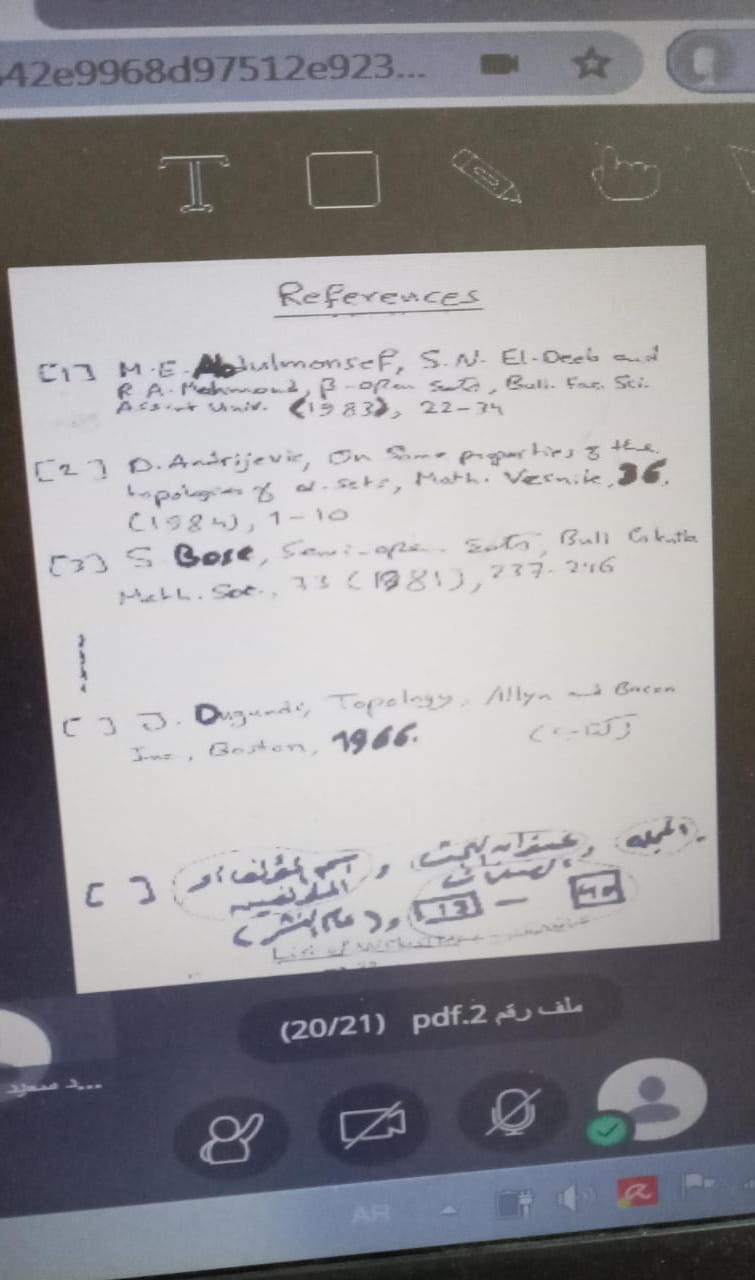 42e9968d97512e923...
T
References
[1] M.E. Abdulmonsef, S.N. El-Deeb and
R A. Mahmoud, β-open sets, Bull. Fac. Sci.
Assiut Univ. (1983), 22-34
[2] D. Andrijevic, On Some properties of the
topologies of α-sets, Math. Vesnik, 36,
(1984), 1-10
[3] S Bose, Semi-open Sets, Bull Calcutta
Math. Soc., 73 (1981), 237-246
[ ] J. Dugundi, Topology, Allyn and Bacon
Inc, Boston, 1966. (كتاب)
[ ] اسم المؤلف أو المؤلفين , عنوان البحث , المجلة.
(عام النشر), الصفحات 13 -
List of
ملف رقم 2.pdf (20/21)
AR